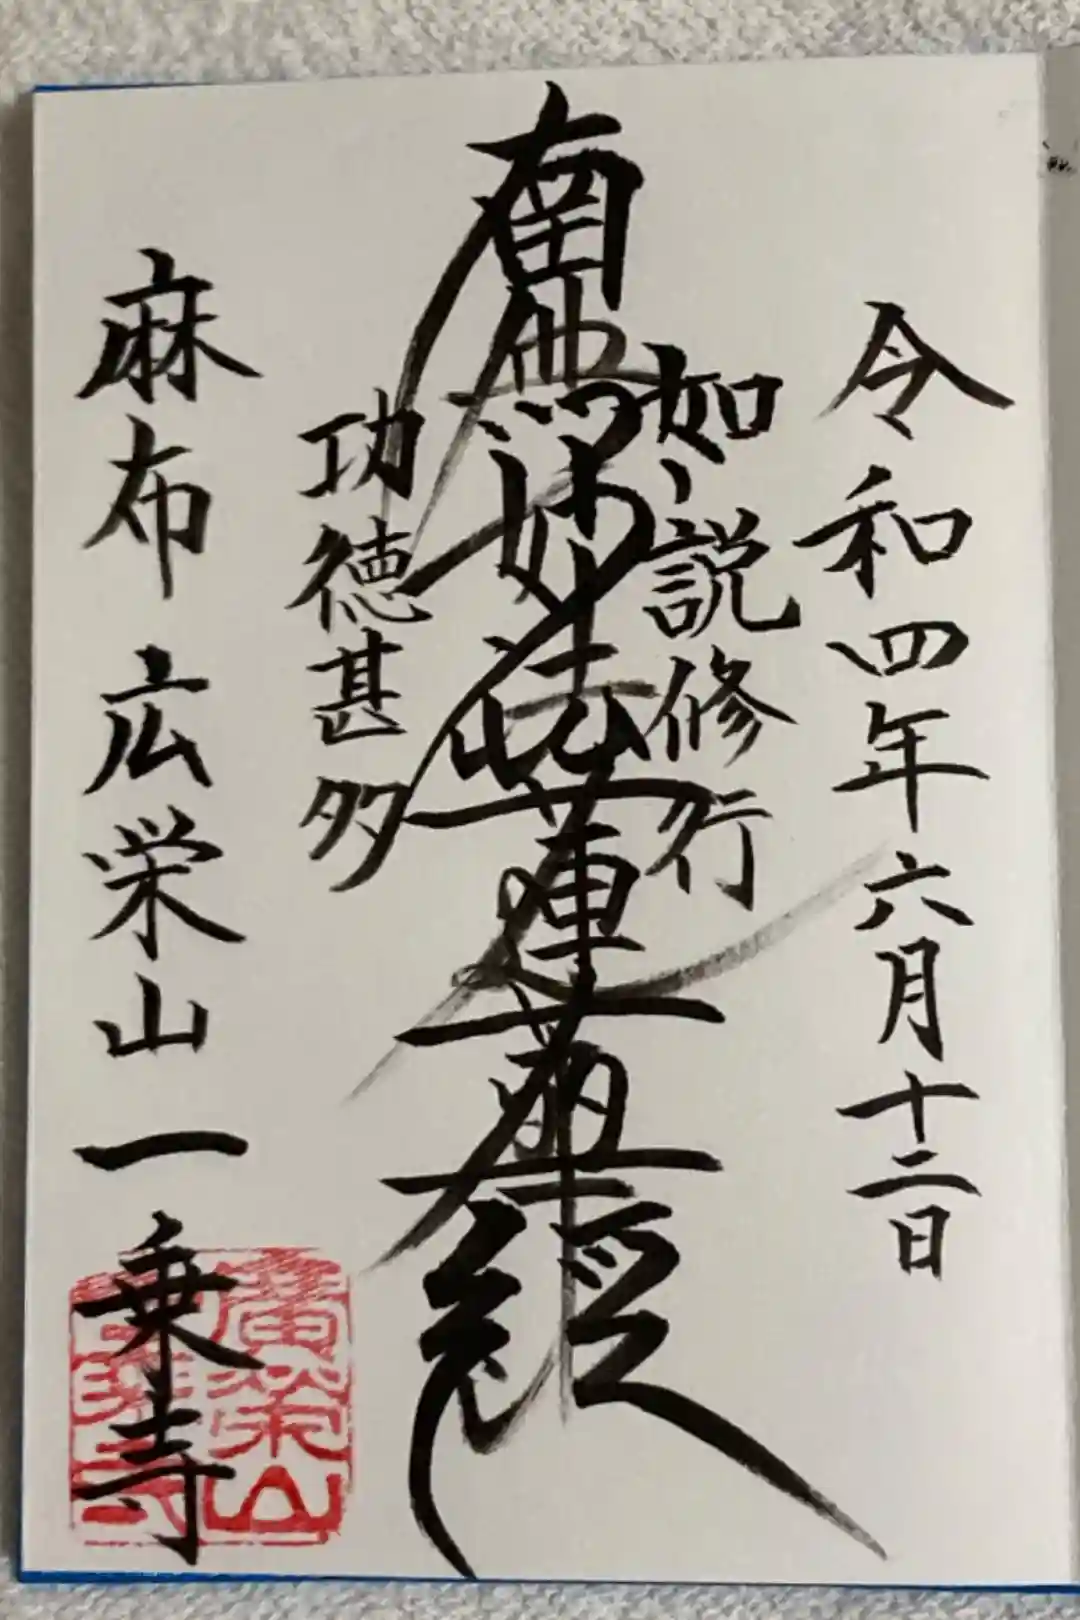 令和四年六月十二日
如説修行
南無妙法蓮華経
功徳甚多
麻布 広栄山 一乗寺
廣榮山